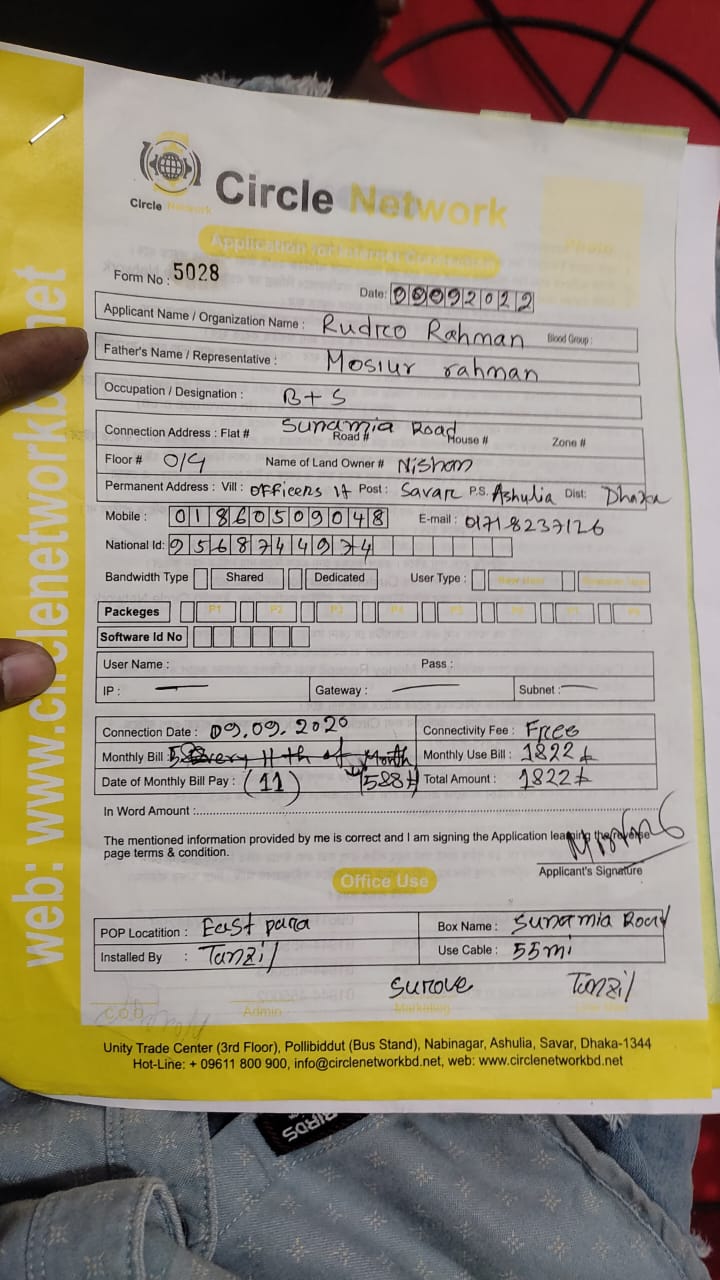 Circle Network
Circle Network
Application for Internet Connection
Photo
Form No : 5028
Date: 09092022
Applicant Name / Organization Name : Rudro Rahman Blood Group :
Father's Name / Representative : Mosiur rahman
Occupation / Designation : B+S
Connection Address : Flat # Sunamia Road Road # House # Zone #
Floor # 0/G Name of Land Owner # Nishom
Permanent Address : Vill : officers Post : Savar P.S. Ashulia Dist: Dhaka
Mobile : 01860509048 E-mail : 01718237126
National Id: 9568744974
Bandwidth Type Shared Dedicated User Type :
Packeges P1 P2 P3 P4 P5 P6 P7 P8
Software Id No
User Name : Pass :
IP : — Gateway : — Subnet : —
Connection Date : 09.09.2020 Connectivity Fee : Free
Monthly Bill : every 11th of Month Monthly Use Bill : 1822
Date of Monthly Bill Pay : (11) 588 Total Amount : 1822
In Word Amount :
The mentioned information provided by me is correct and I am signing the Application learning the reverse
page terms & condition.
Applicant's Signature
Office Use
POP Locatition : East para Box Name : Sunamia Road
Installed By : Tanzil Use Cable : 55mi
Surove Tanzil
C.O.O Admin Marketing
Unity Trade Center (3rd Floor), Pollibiddut (Bus Stand), Nabinagar, Ashulia, Savar, Dhaka-1344
Hot-Line: + 09611 800 900, info@circlenetworkbd.net, web: www.circlenetworkbd.net
web: www.circlenetworkbd.net